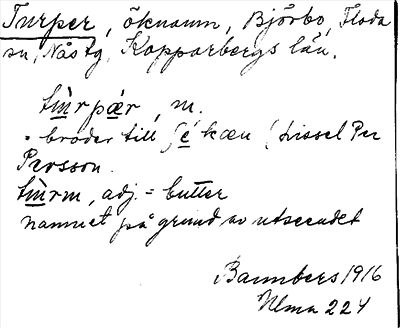 Turper, öknamn, Björbo, Floda
sn, Nås tg, Kopparbergs län.
tùrpær, m.
= broder till ʃè kæn (Lissel Per
Persson.
tùrm, adj. = butter
namnet på grund av utseendet
Bannbers 1916
Ulma 224